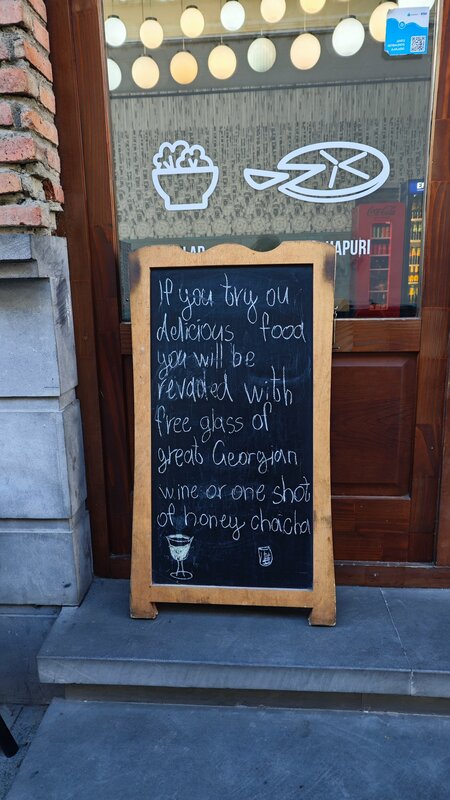 Coca-Cola
LAD
HAPURI
If you try ou
delicious food
you will be
revaded with
free glass of
great Georgian
wine or one shot
of honey chacha